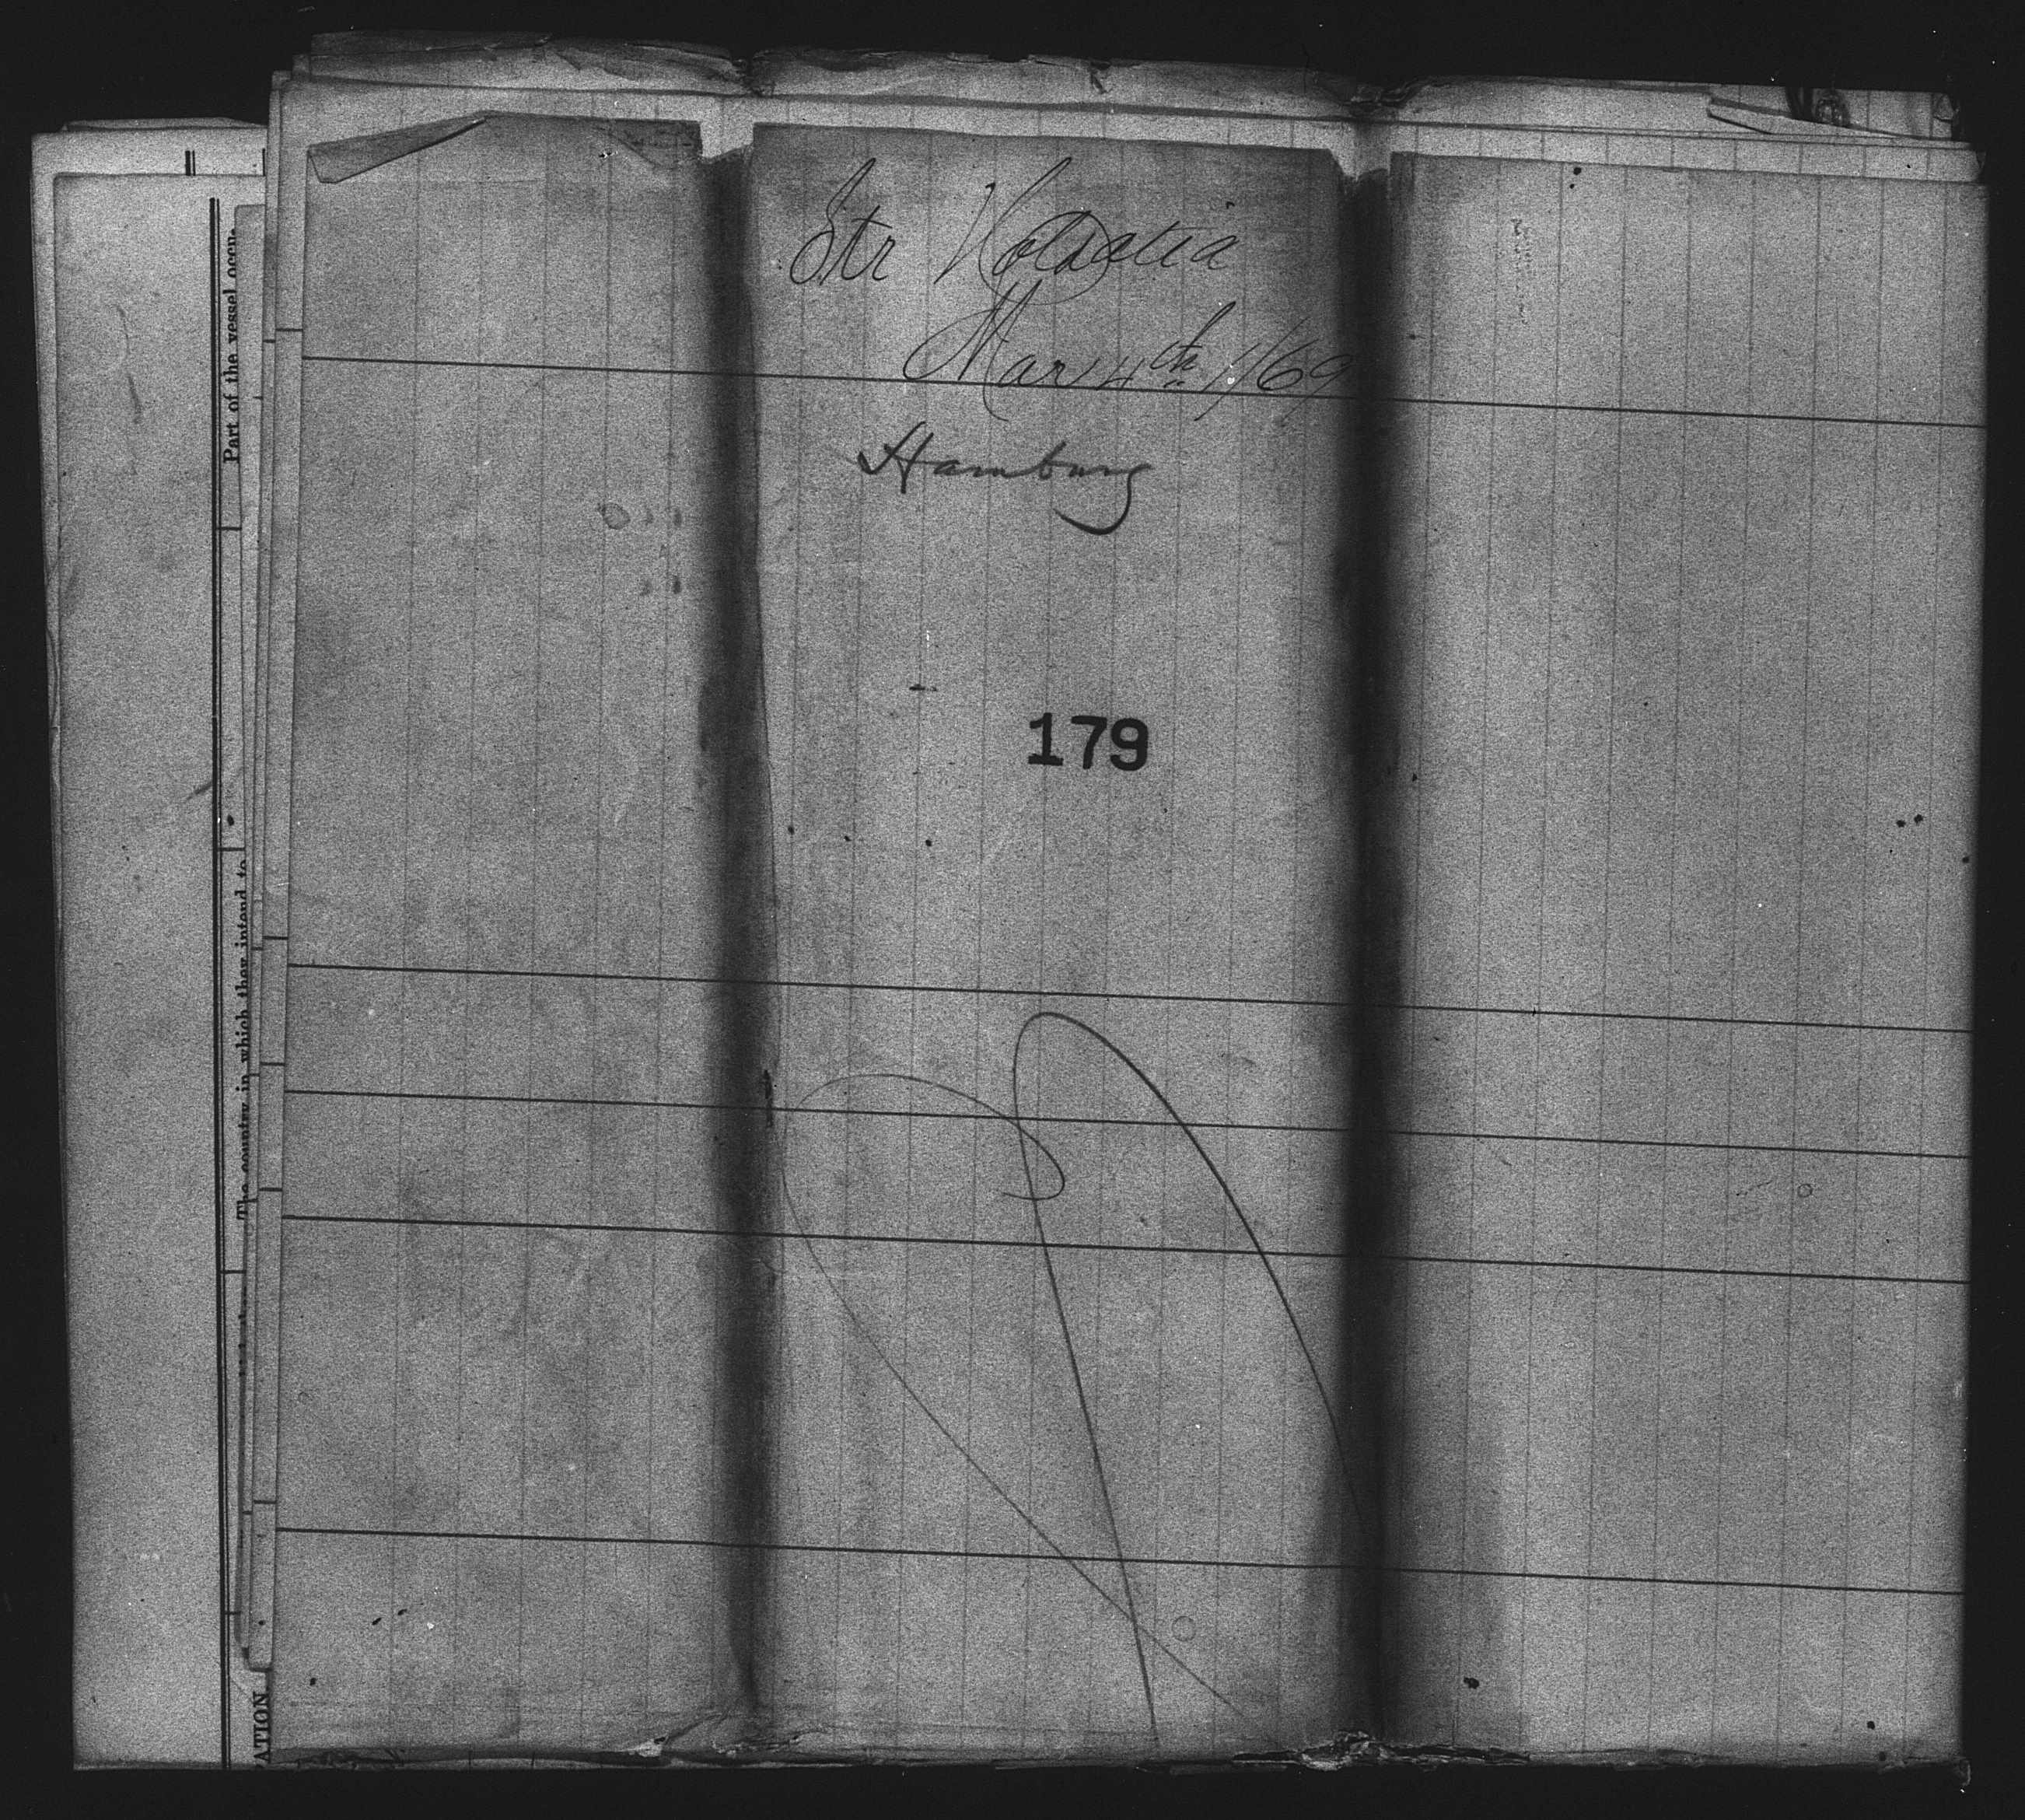 Str Holsatia
Mar 4th / 69
Hamburg
179
Part of the vessel occu-
The country in which they intend to
ATION